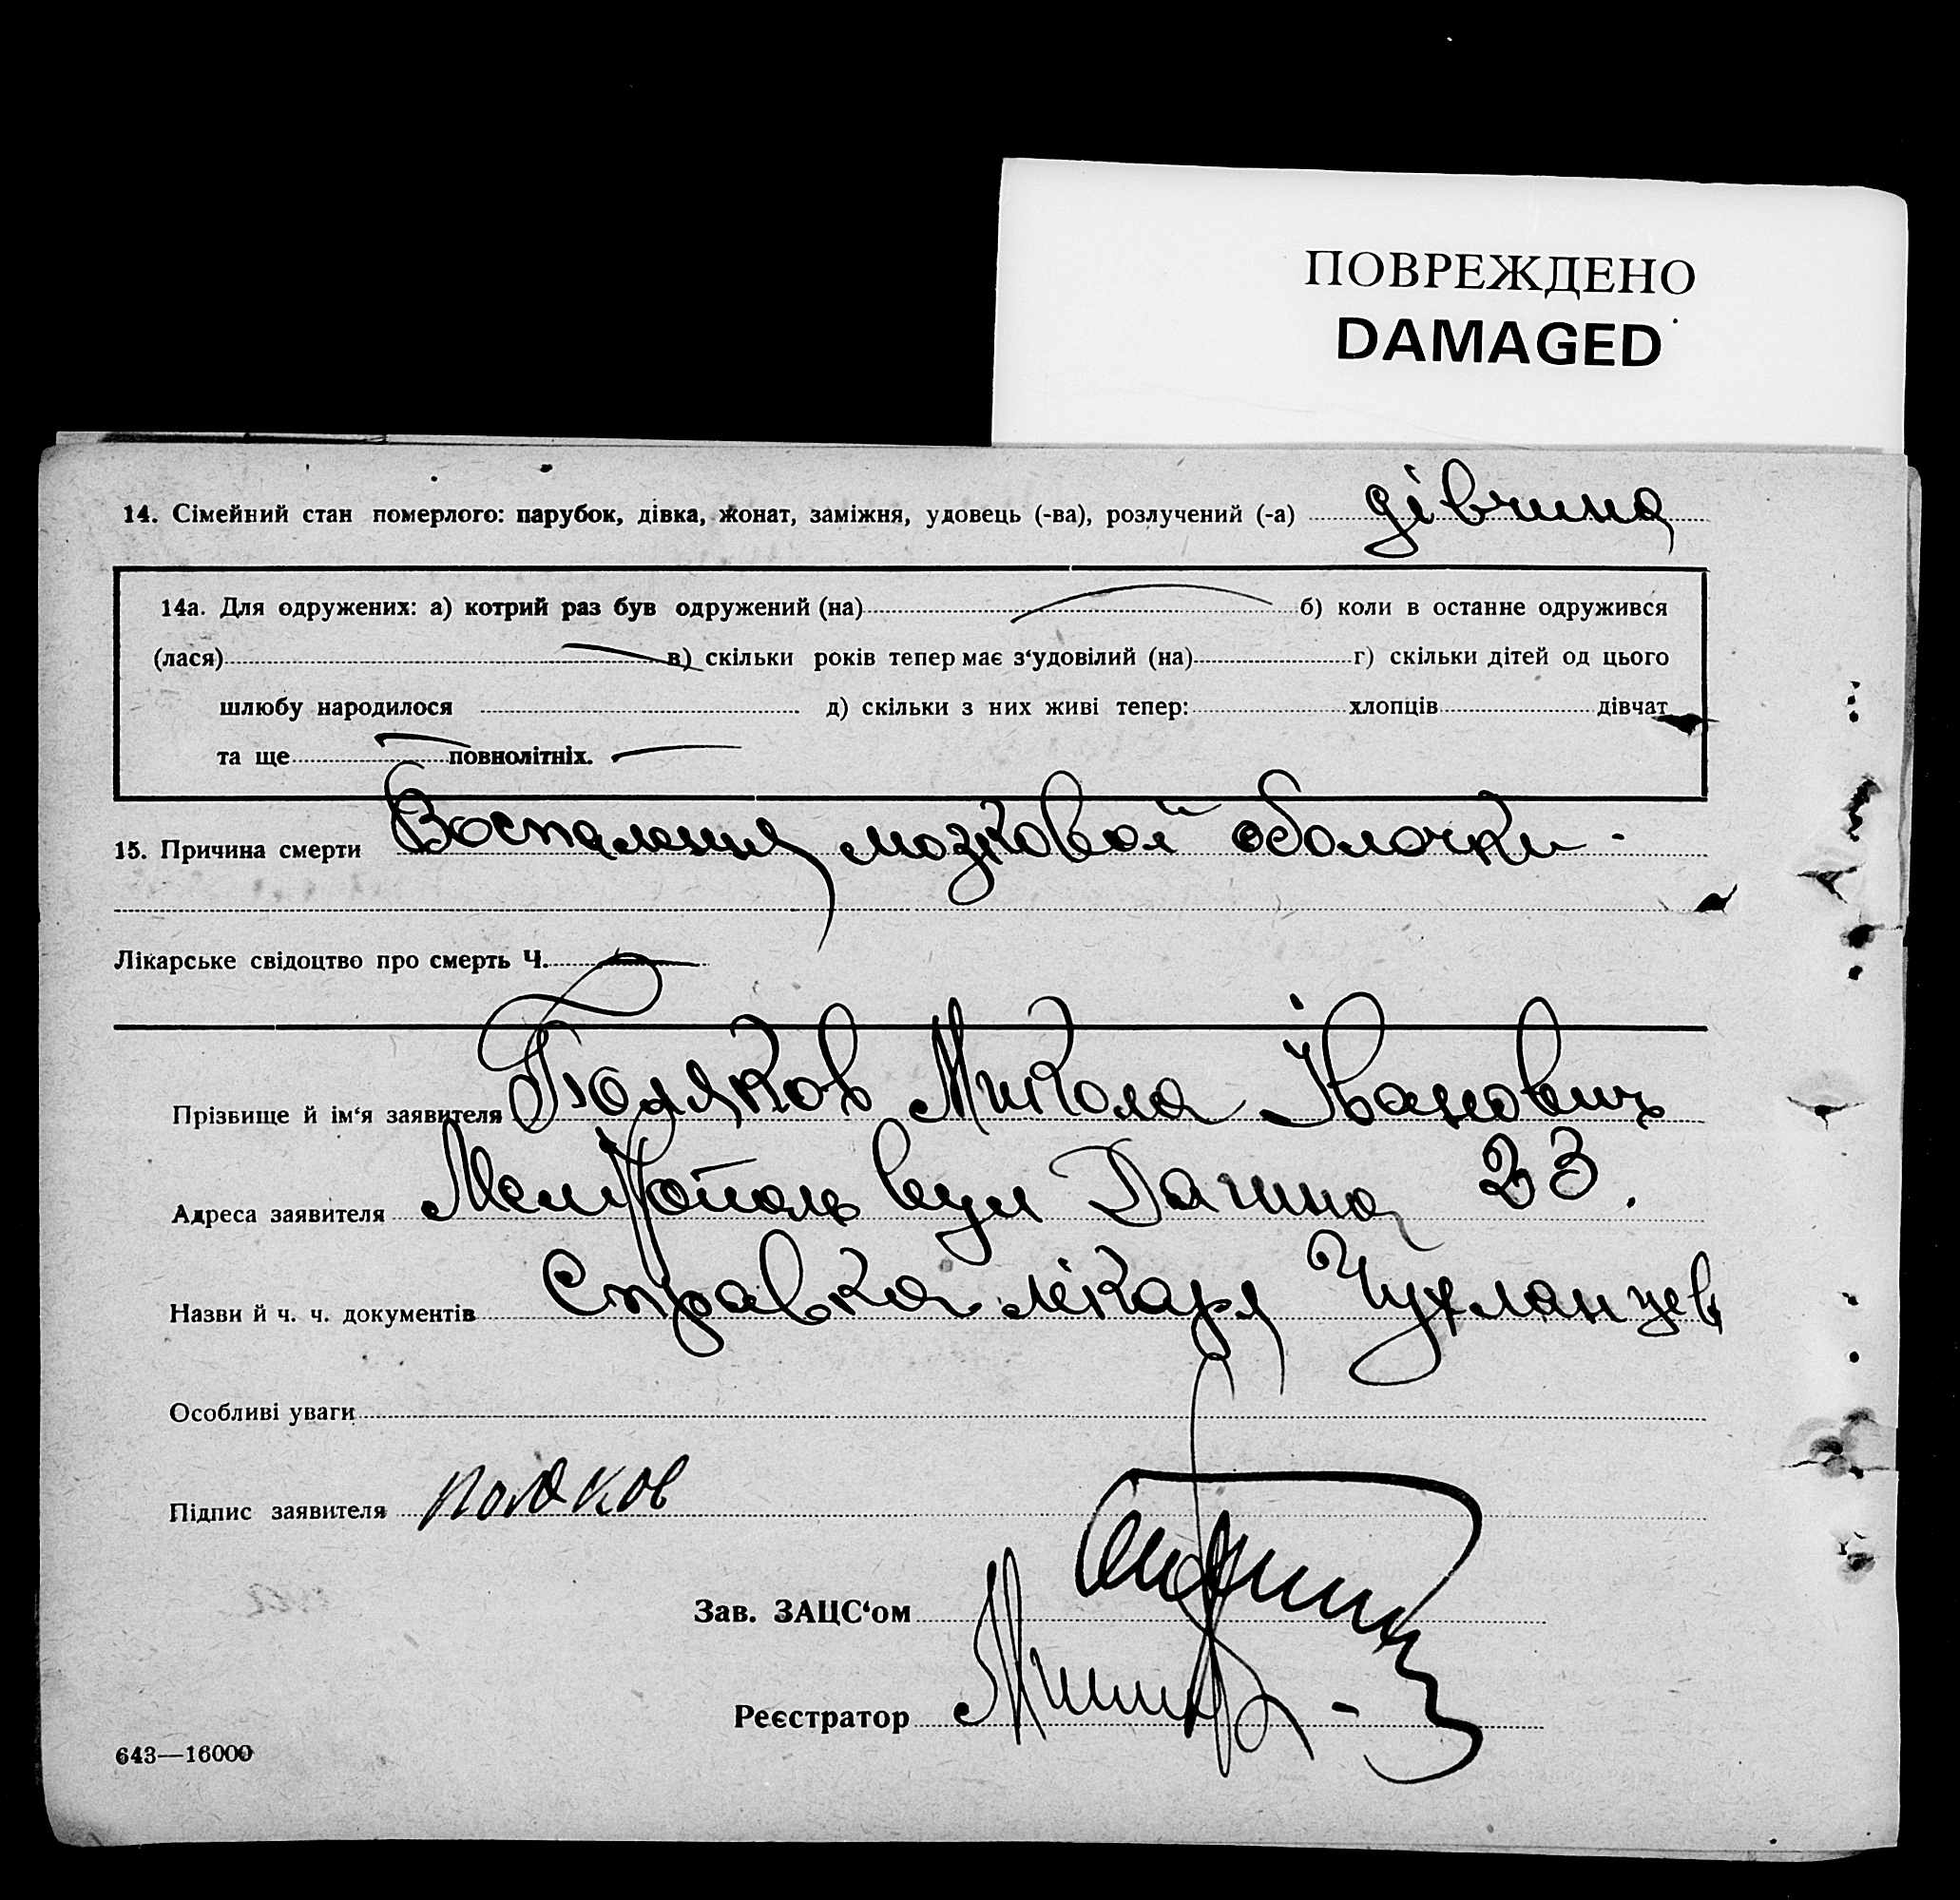 ПОВРЕЖДЕНО
DAMAGED
14. Сімейний стан померлого: парубок, дівка, жонат, заміжня, удовець (-ва), розлучений (-а) дівчина
14а. Для одружених: а) котрий раз був одружений (на) б) коли в останне одружився
(лася) в) скільки років тепер має з‘удовілий (на) г) скільки дітей од цього
шлюбу народилося д) скільки з них живі тепер: хлопців дівчат
та ще повнолітніх.
15. Причина смерти Воспаления мозковой оболочки -
Лікарське свідоцтво про смерть Ч.
Прізвище й ім‘я заявителя Поляков Микола Іванович
Адреса заявителя Мелітополь вул Дачина 23.
Назви й ч. ч. документів Справка лікаря Чухланцев
Особливі уваги
Підпис заявителя Поляков
Зав. ЗАЦС‘ом
Реєстратор
643—16000